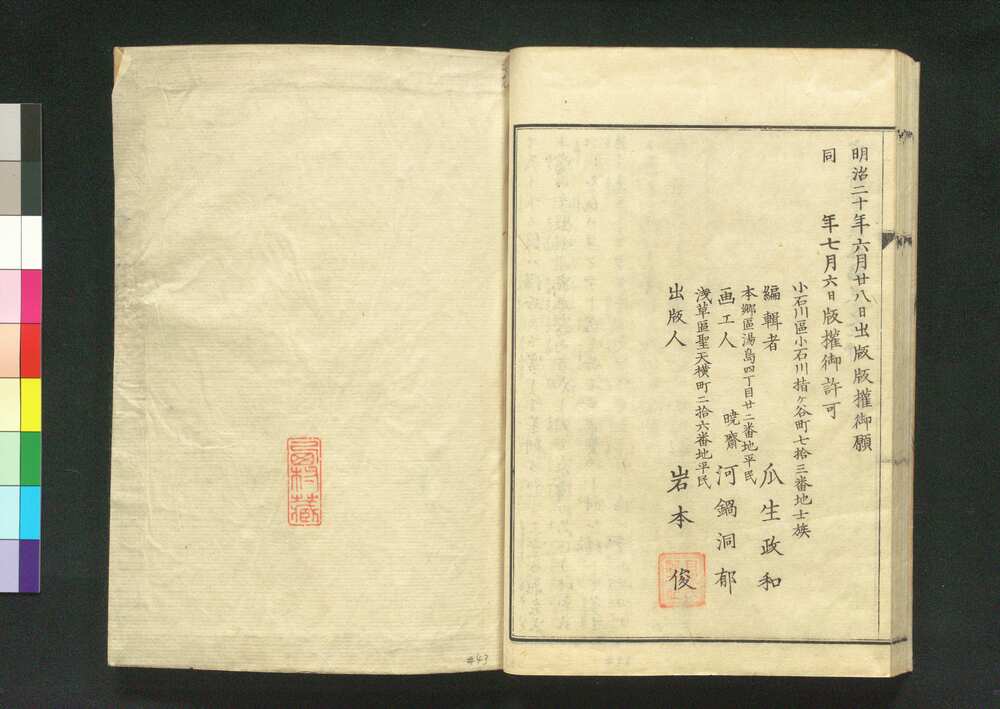 明治二十年六月廿八日出版版權御願
同　年七月六日版權御許可
小石川區小石川指ヶ谷町七拾三番地士族
編輯者　瓜生政和
本郷區湯島四丁目廿二番地平民
画工人　暁齋　河鍋洞郁
浅草區聖天横町二拾六番地平民
出版人　岩本　俊
#43